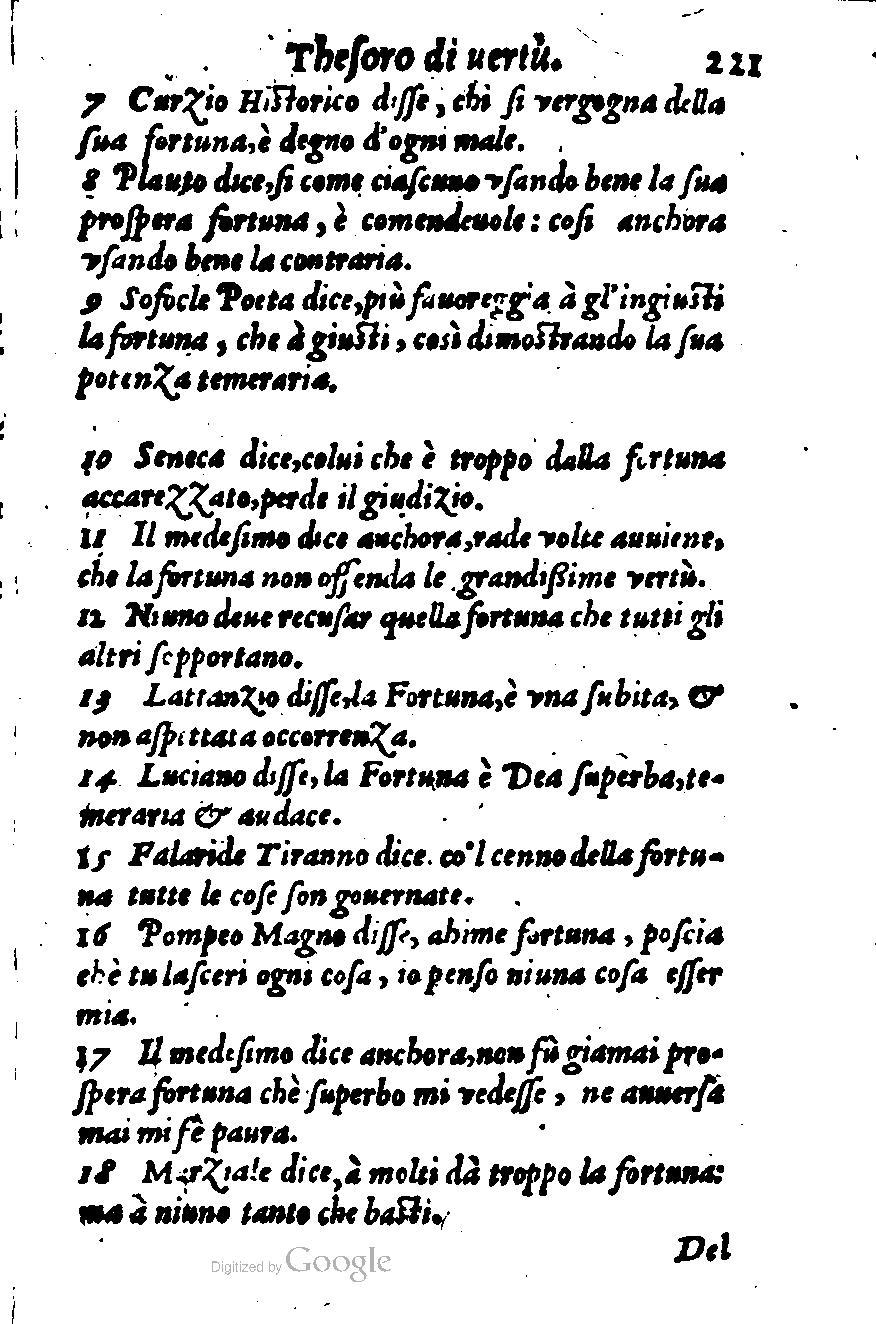 Theſoro di uertù. 221
7 Curzio Hiſtorico diſſe, chi ſi vergogna della
ſua fortuna, è degno d'ogni male.
8 Plauto dice, ſi come ciaſcuno vſando bene la ſua
proſpera fortuna, è comendeuole: coſi anchora
vſando bene la contraria.
9 Sofocle Poeta dice, più fauoreggia à gl'ingiuſti
la fortuna, che à giuſti, così dimoſtrando la ſua
potenza temeraria.
10 Seneca dice, colui che è troppo dalla fortuna
accarezzato, perde il giudizio.
11 Il medeſimo dice anchora, rade volte auuiene,
che la fortuna non offenda le grandiſſime vertù.
12 Niuno deue recuſar quella fortuna che tutti gli
altri ſopportano.
13 Lattanzio diſſe, la Fortuna, è vna ſubita, &
non aſpettata occorrenza.
14 Luciano diſſe, la Fortuna è Dea ſuperba, te-
meraria & audace.
15 Falaride Tiranno dice. co'l cenno della fortu-
na tutte le coſe ſon gouernate.
16 Pompeo Magno diſſe, ahime fortuna, poſcia
chè tu laſceri ogni coſa, io penſo niuna coſa eſſer
mia.
17 Il medeſimo dice anchora, non fù giamai pro-
ſpera fortuna chè ſuperbo mi vedeſſe, ne auuerſa
mai mi fè paura.
18 Marziale dice, à molti dà troppo la fortuna:
ma à niuno tanto che baſti.
Del
Digitized by Google